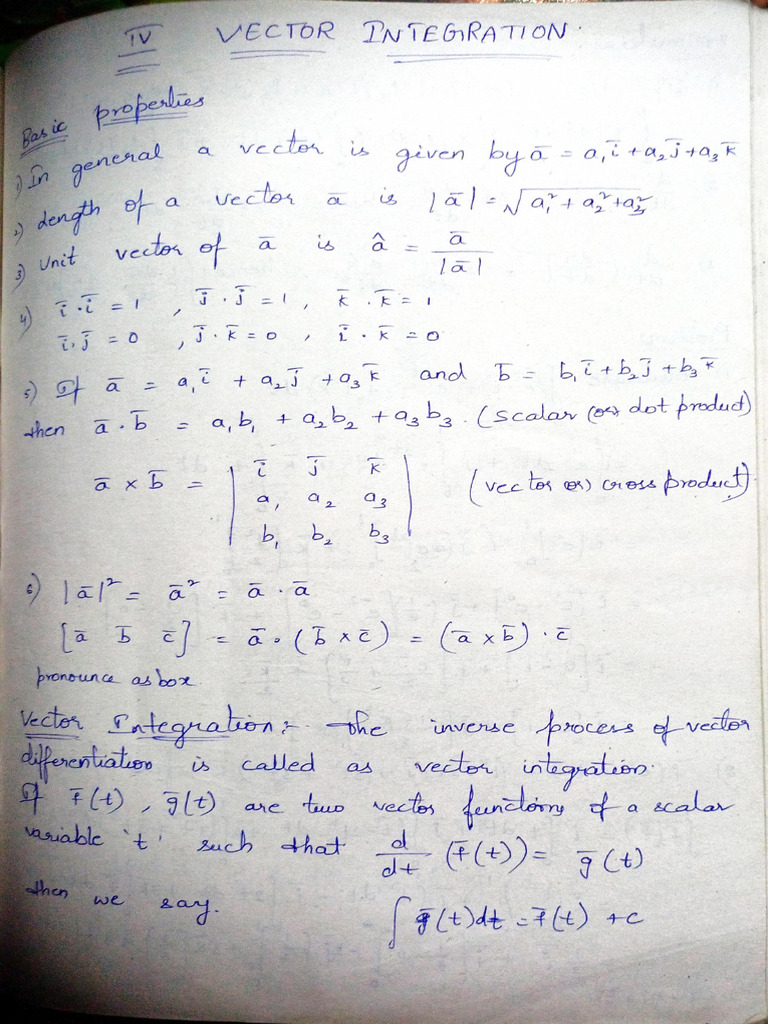 IV VECTOR INTEGRATION.
Basic properties
1) In general a vector is given by ā = a₁ī + a₂j̄ + a₃k̄
2) Length of a vector ā is |ā| = √(a₁² + a₂² + a₃²)
3) Unit vector of ā is â = ā / |ā|
4) ī·ī = 1 , j̄·j̄ = 1, k̄·k̄ = 1
ī·j̄ = 0 , j̄·k̄ = 0 , ī·k̄ = 0
5) If ā = a₁ī + a₂j̄ + a₃k̄ and b̄ = b₁ī + b₂j̄ + b₃k̄
then ā·b̄ = a₁b₁ + a₂b₂ + a₃b₃. (scalar (or) dot product)
ā × b̄ = | ī j̄ k̄ | (vector or) cross product)
| a₁ a₂ a₃ |
| b₁ b₂ b₃ |
6) |ā|² = ā² = ā·ā
[ā b̄ c̄] = ā·(b̄ × c̄) = (ā × b̄)·c̄
pronounce as box
Vector Integration:- The inverse process of vector
differentiation is called as vector integration.
If f̄(t), ḡ(t) are two vector functions of a scalar
variable 't' such that d/dt (f̄(t)) = ḡ(t)
then we say. ∫ ḡ(t)dt = f̄(t) + c